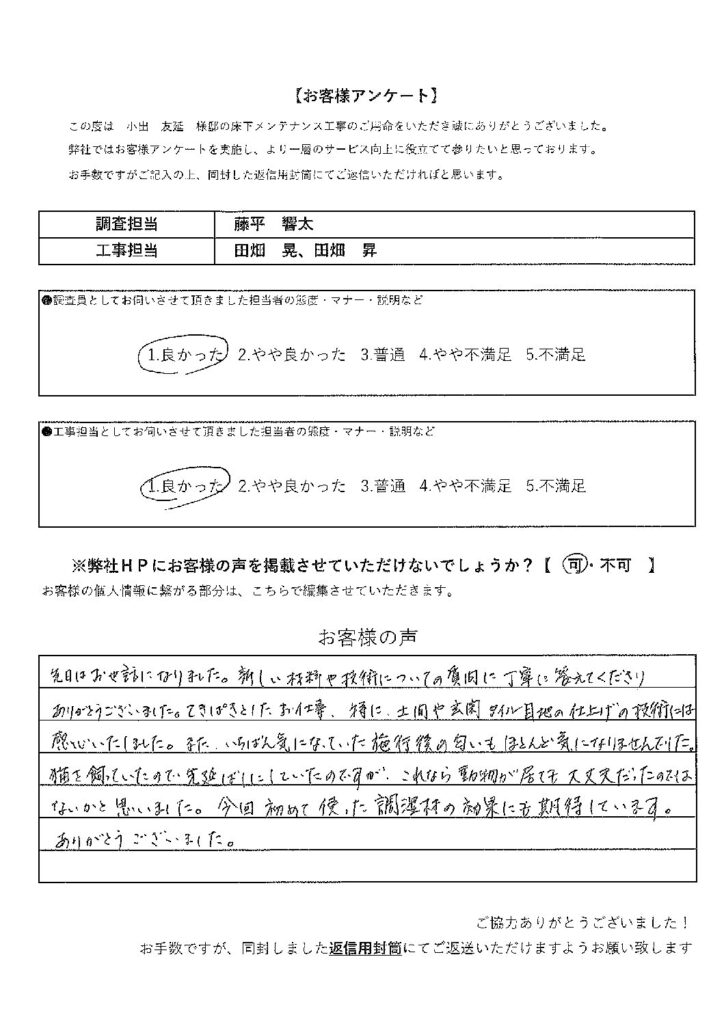 【お客様アンケート】
この度は 小出 友延 様邸の床下メンテナンス工事のご用命をいただき誠にありがとうございました。
弊社ではお客様アンケートを実施し、より一層のサービス向上に役立てて参りたいと思っております。
お手数ですがご記入の上、同封した返信用封筒にてご返信いただければと思います。
調査担当 藤平 響太
工事担当 田畑 晃、田畑 昇
●調査員としてお伺いさせて頂きました担当者の態度・マナー・説明など
1.良かった 2.やや良かった 3.普通 4.やや不満足 5.不満足
●工事担当としてお伺いさせて頂きました担当者の態度・マナー・説明など
1.良かった 2.やや良かった 3.普通 4.やや不満足 5.不満足
※弊社HPにお客様の声を掲載させていただけないでしょうか?【 可・不可 】
お客様の個人情報に繋がる部分は、こちらで編集させていただきます。
お客様の声
先日はお世話になりました。新しい材料や技術についての質問に丁寧に答えてくださり
ありがとうございました。てきぱきとしたお仕事、特に、土間や玄関タイル目地の仕上げの技術には
感心いたしました。また、いちばん気になっていた施行後の匂いもほとんど気になりませんでした。
猫を飼っていたので先延ばしにしていたのですが、これなら動物が居ても大丈夫だったのでは
ないかと思いました。今回初めて使った調湿材の効果にも期待しています。
ありがとうございました。
ご協力ありがとうございました!
お手数ですが、同封しました返信用封筒にてご返送いただけますようお願い致します